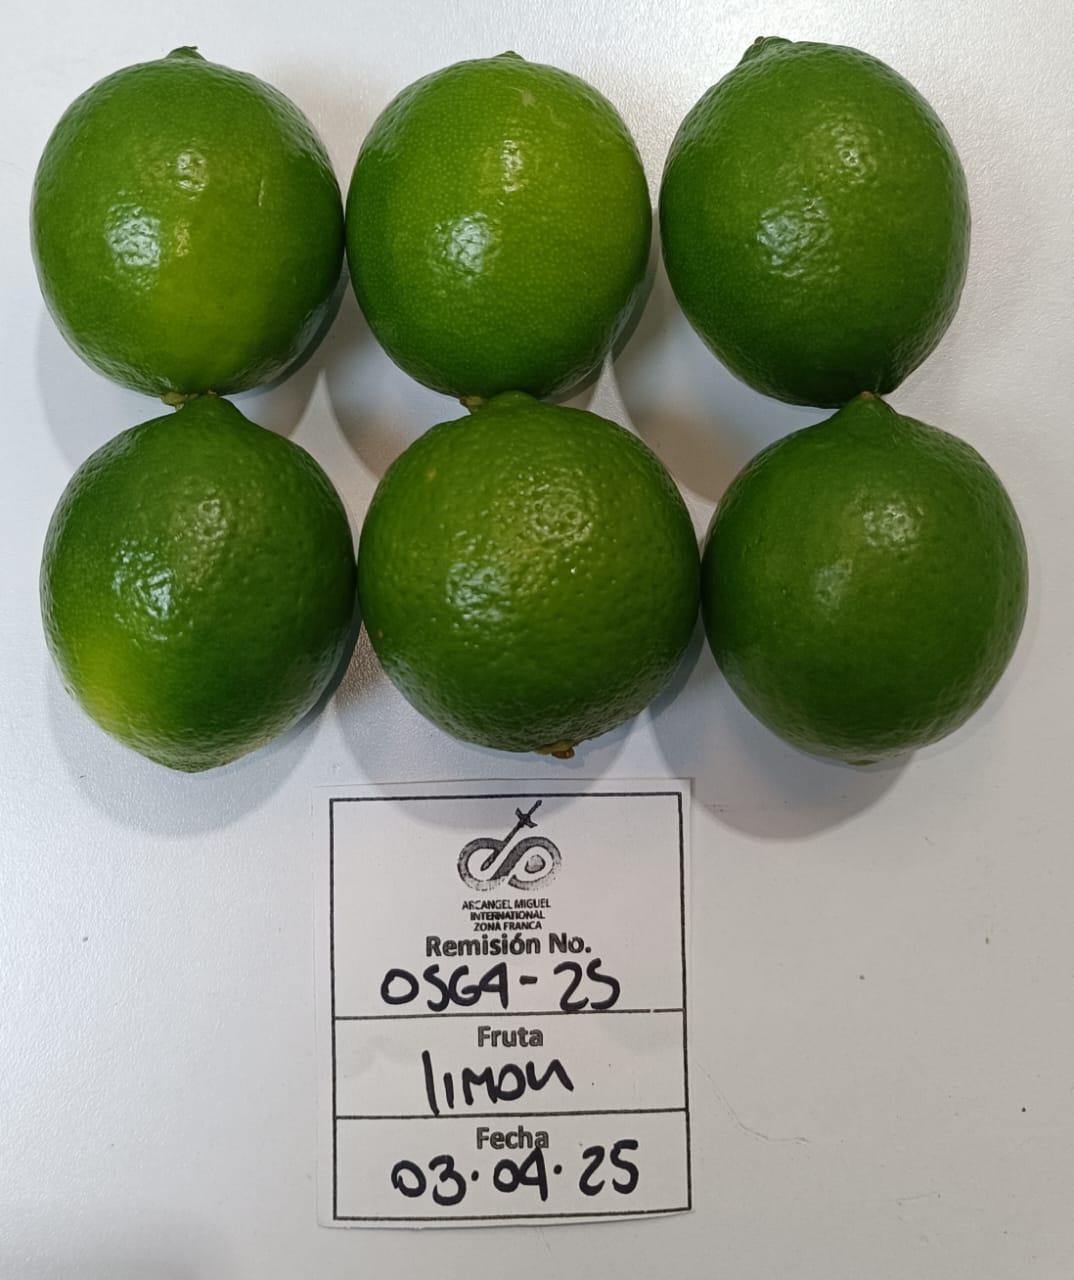 ARCANGEL MIGUEL
INTERNATIONAL
ZONA FRANCA
Remisión No.
0564-25
Fruta
limon
Fecha
03.04.25